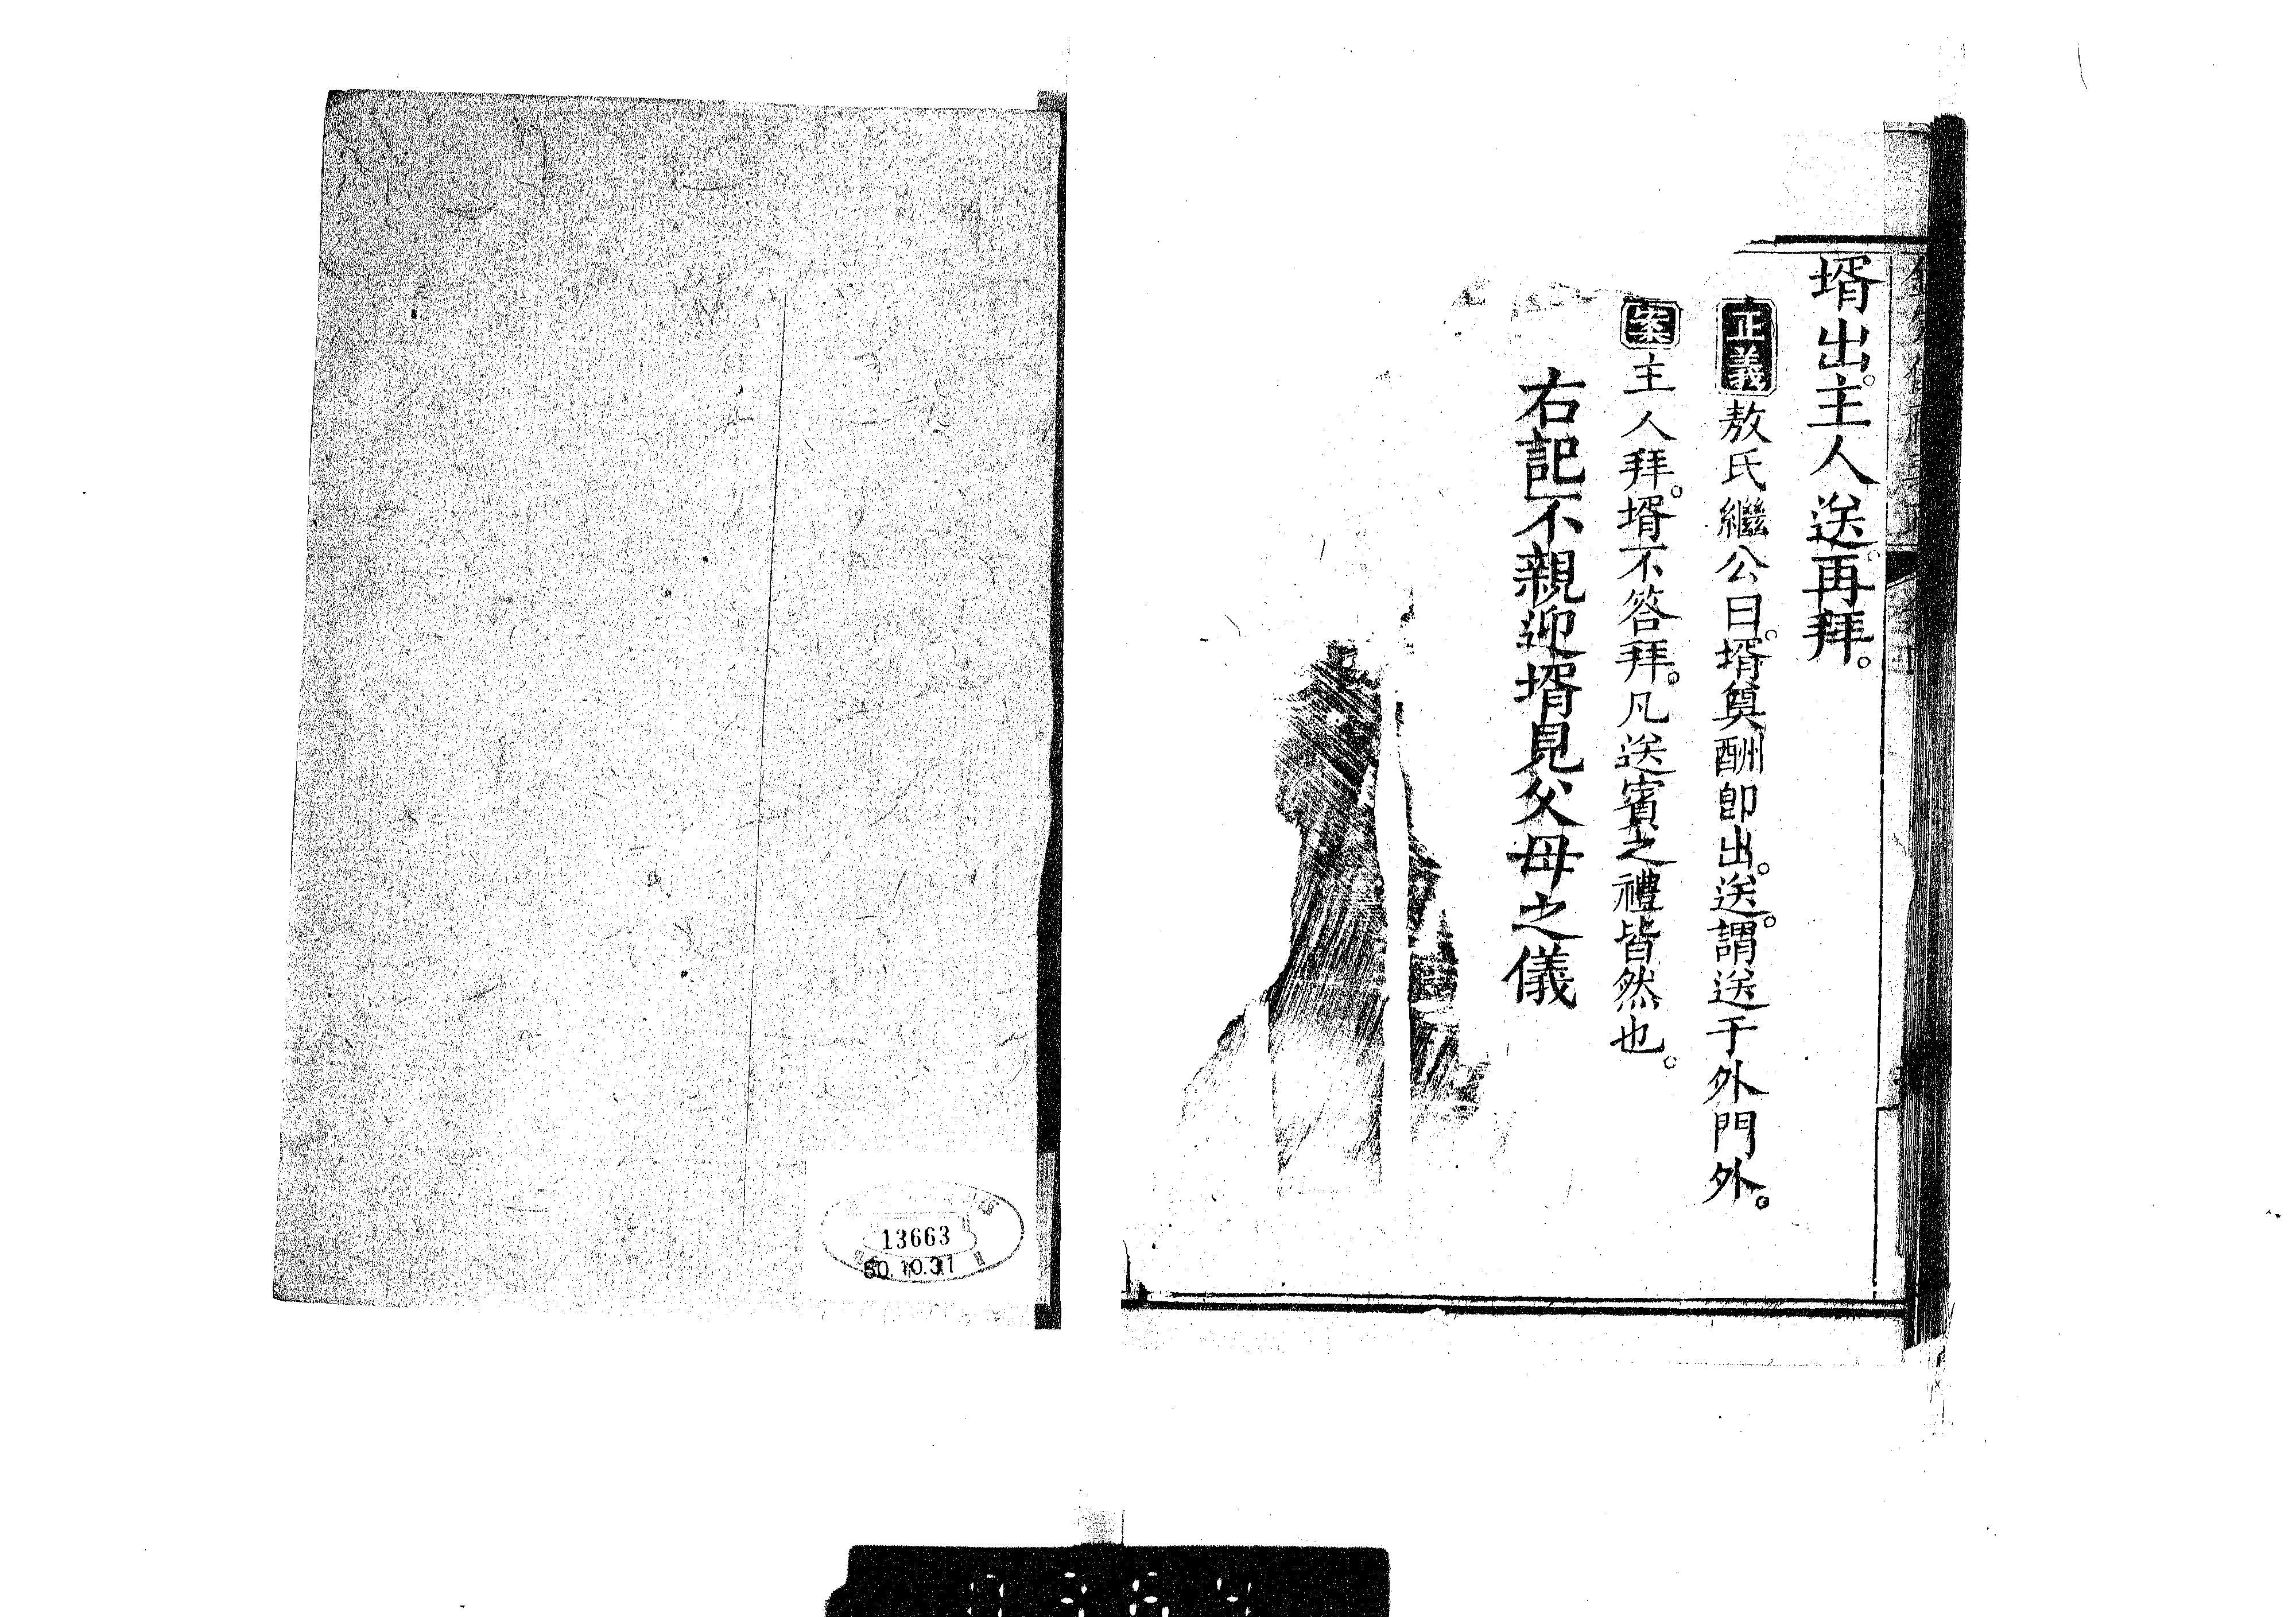 壻出。主人送。再拜。
正義敖氏繼公曰。壻奠酬卽出。送。謂送于外門外。
案主人拜。壻不答拜。凡送賓之禮皆然也。
右記不親迎壻見父母之儀
13663
50.10.31